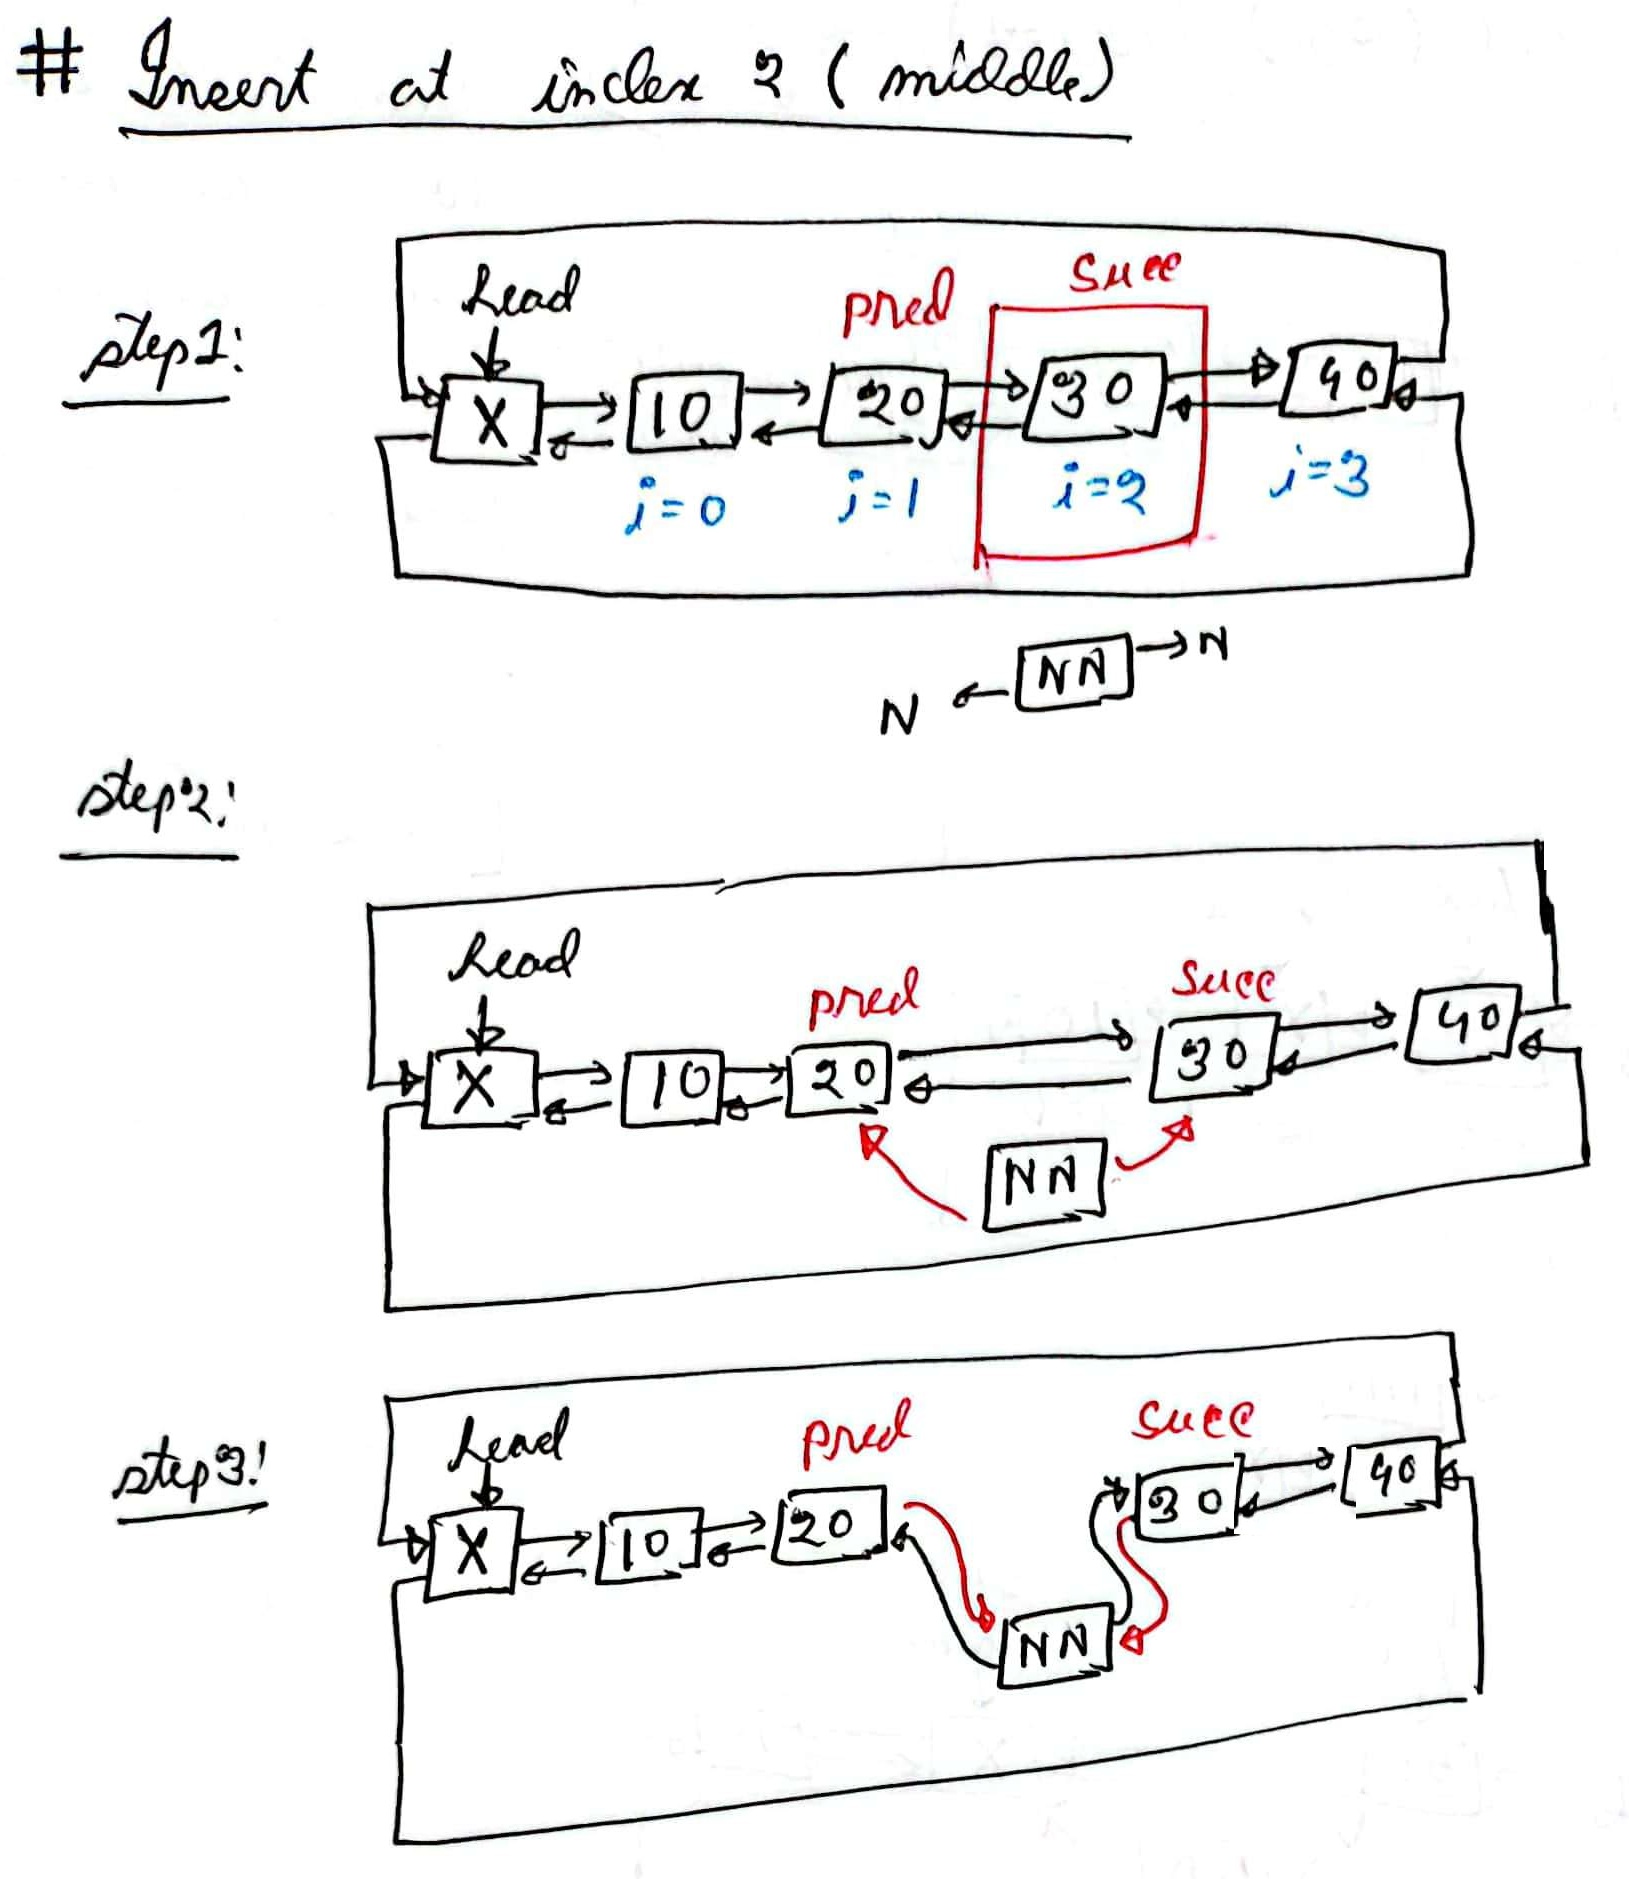 # Insert at index 2 (middle)
step1:
head
pred
succ
X 10 20 30 40
i=0 i=1 i=2 i=3
N NN N
step2:
head
pred
succ
X 10 20 30 40
NN
step3:
head
pred
succ
X 10 20 30 40
NN